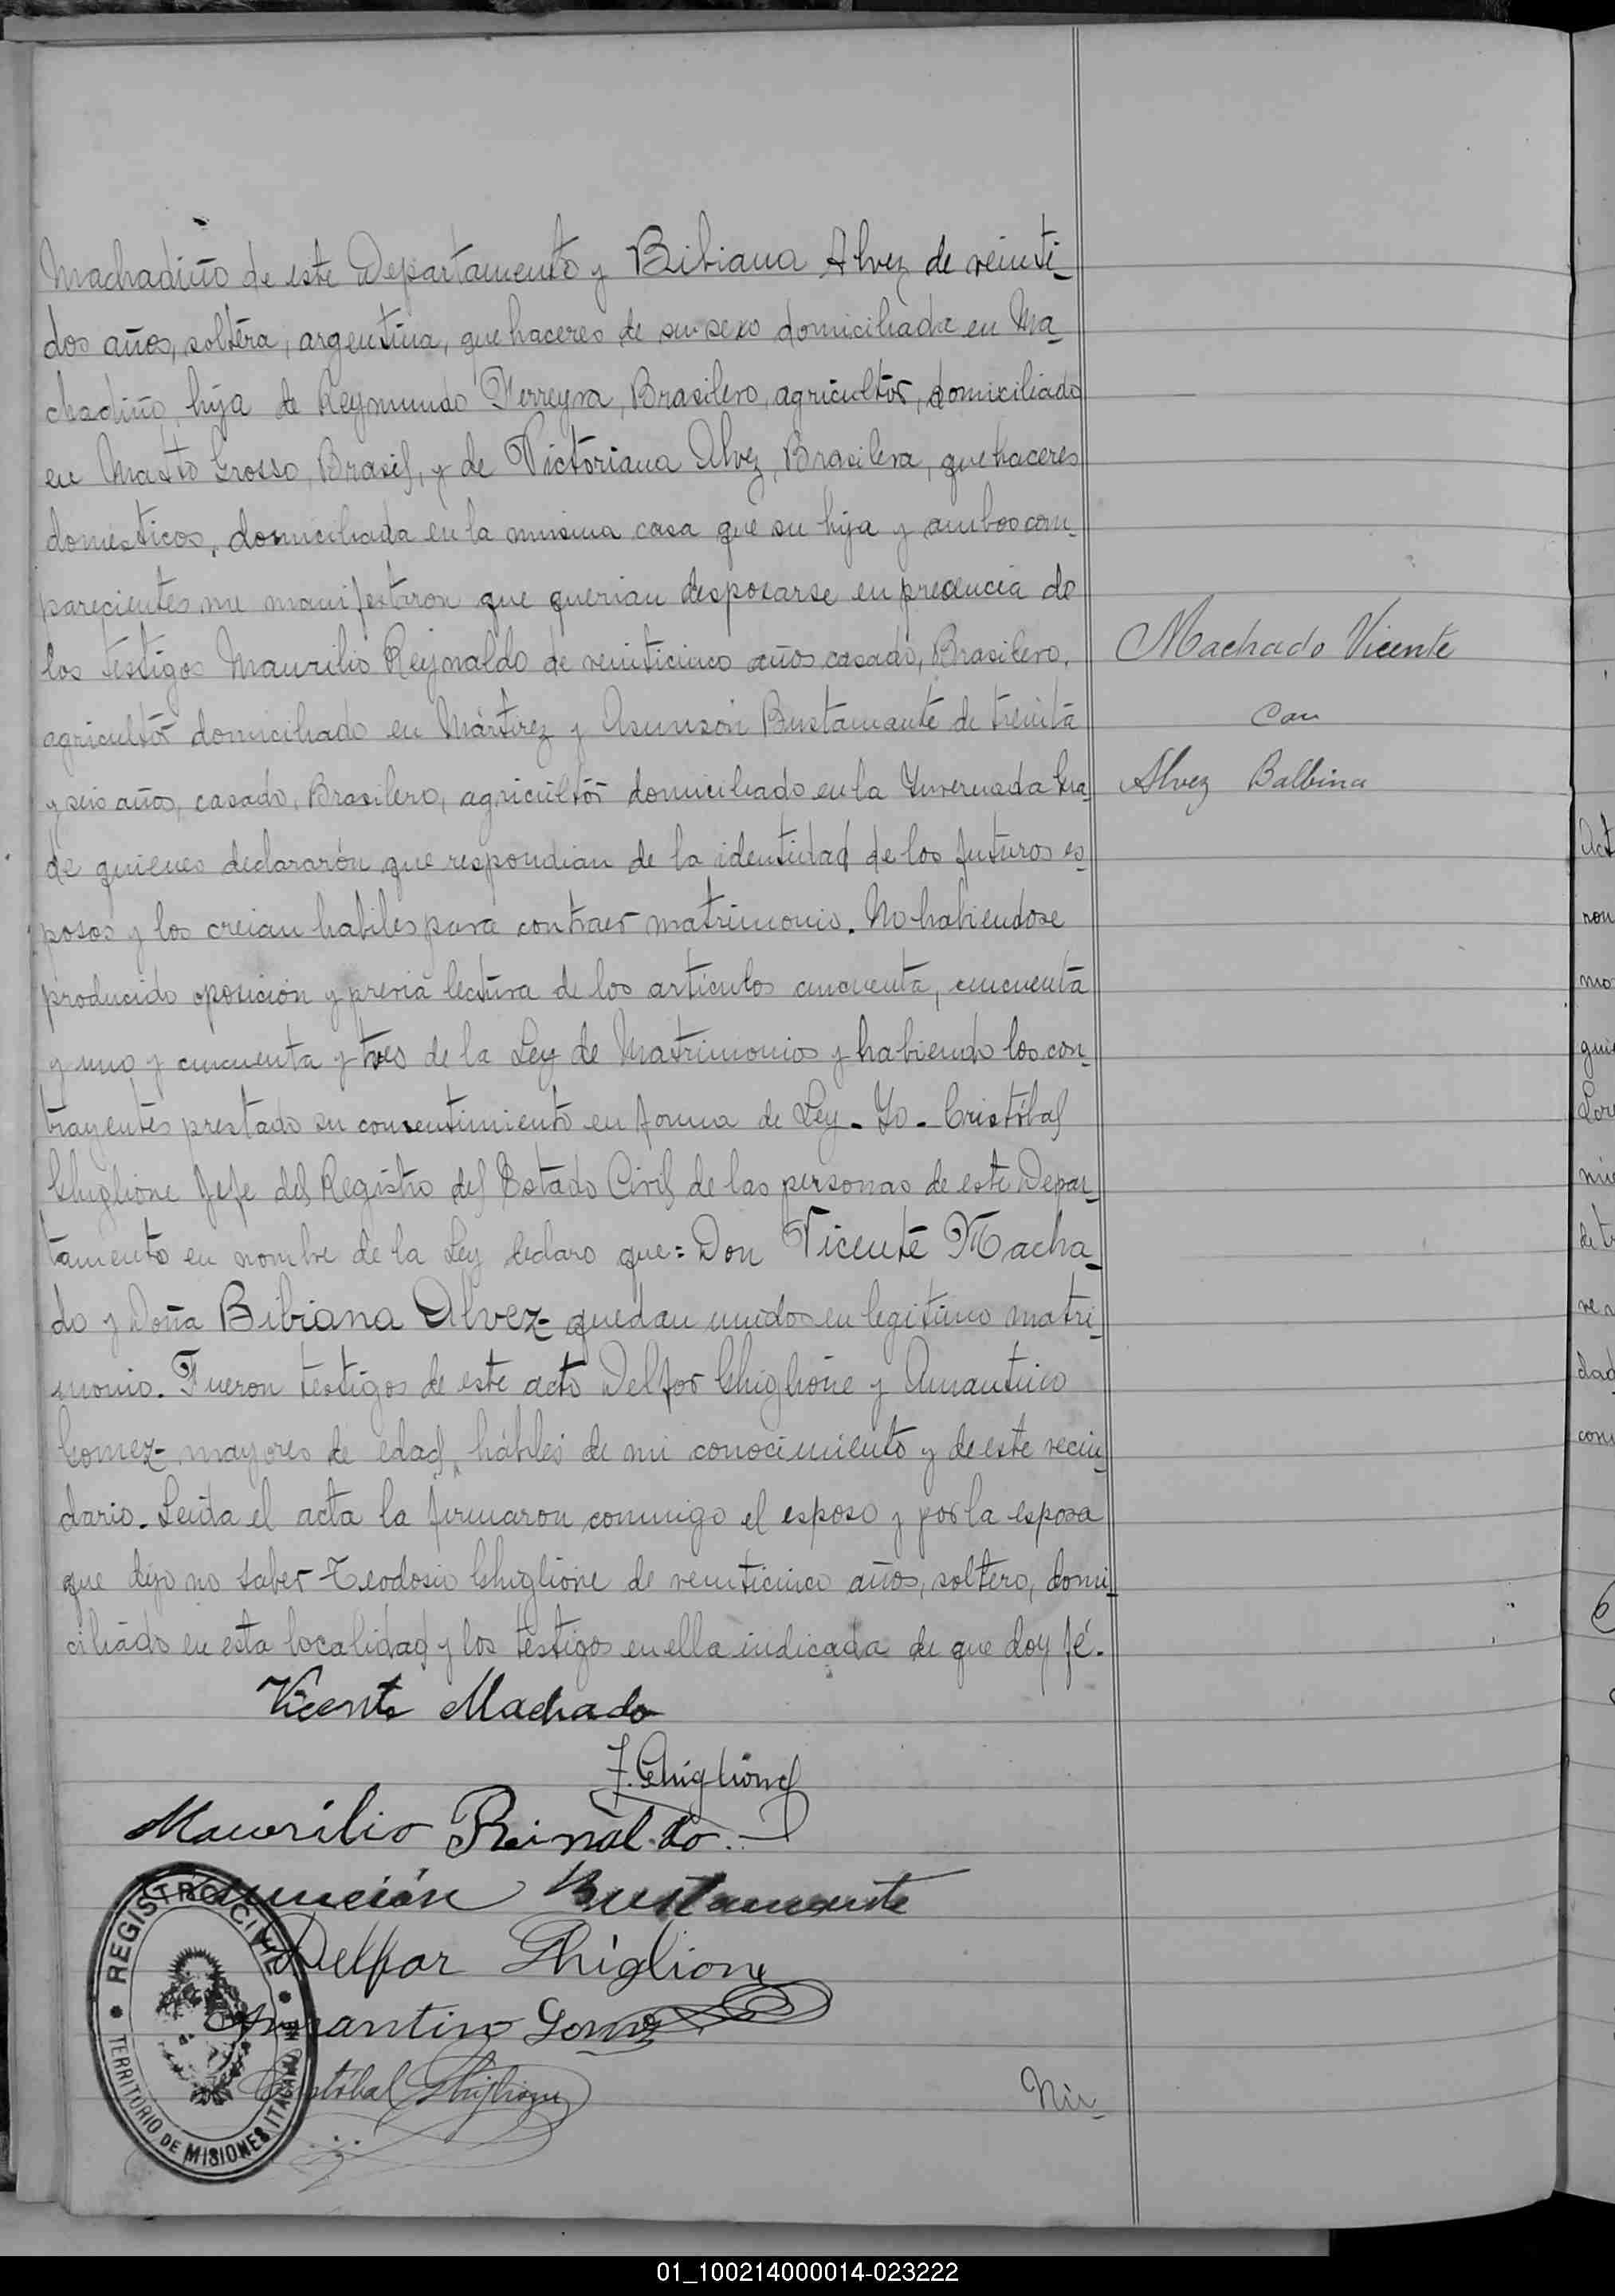 Machadiño de este Departamento y Bibiana Alvez de veinti-
dos años, soltera, argentina, quehaceres de su sexo domiciliada en Ma-
chadiño, hija de Reymundo Ferreyra, Brasilero, agricultor, domiciliado
en Matto Grosso, Brasil, y de Victoriana Alvez, Brasilera, quehaceres
domesticos, domiciliada en la misma casa que su hija y ambos com-
parecientes me manifestaron que querian desposarse en precencia de
los testigos Maurilio Reynaldo de veinticinco años casado, Brasilero,
agricultor domiciliado en Mártirez y Asunsón Bustamante de treinta
y seis años, casado, Brasilero, agricultor domiciliado en la Invernada Gra-
de quienes declararón que respondian de la identidad de los futuros es-
posos y los creian habiles para contraer matrimonio. No habiendose
producido oposición y previa lectura de los articulos cincuenta, cincuenta
y uno y cincuenta y tres de la Ley de Matrimonios y habiendo los con-
trayentes prestado su consentimiento en forma de Ley - Yo - Cristóbal
Ghiglione Jefe del Registro del Estado Civil de las personas de este Depar-
tamento en nombre de la Ley declaro que = Don Vicente Macha-
do y Doña Bibiana Alvez - quedan unidos en legitimo matri-
monio. Fueron testigos de este acto Delfor Ghiglione y Amantino
Gomez - mayores de edad, hábiles de mi conocimiento y de este vecin-
dario. Leida el acta la firmaron conmigo el esposo y por la esposa
que dijo no saber - Teodosio Ghiglione de veinticinco años, soltero, domi-
ciliado en esta localidad y los testigos en ella indicada de que doy fé.
Machado Vicente
con
Alvez Balbina
Vicente Machado
T. Ghiglione
Maurilio Reinaldo
Asunción Bustamante
Delfor Ghiglione
Amantino Gomez
Cristóbal Ghiglione
REGISTRO CIVIL
TERRITORIO DE MISIONES
Nú-
Act
mo
qui
Lor
mi
de t
ve
dad
con
01_100214000014-023222